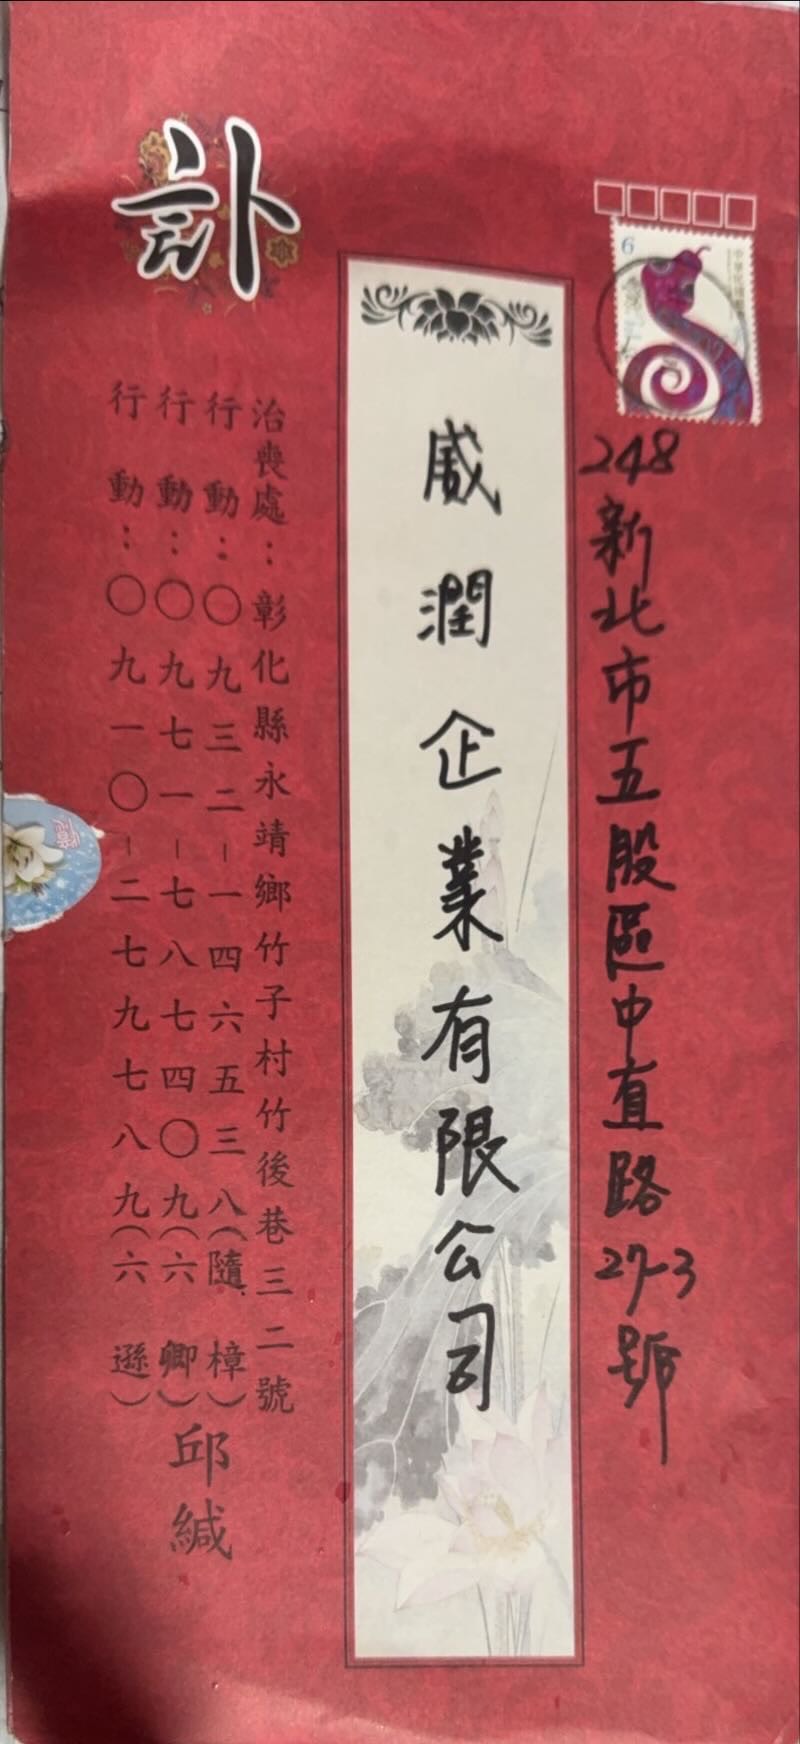 訃
6
248新北市五股區中直路27-3號
威潤企業有限公司
治喪處：彰化縣永靖鄉竹子村竹後巷三二號
行動：〇九三二－一四六五三八（隨樟）
行動：〇九七一－七八七四〇九（六卿）
行動：〇九一〇－二七九七八九（六遜）
邱緘